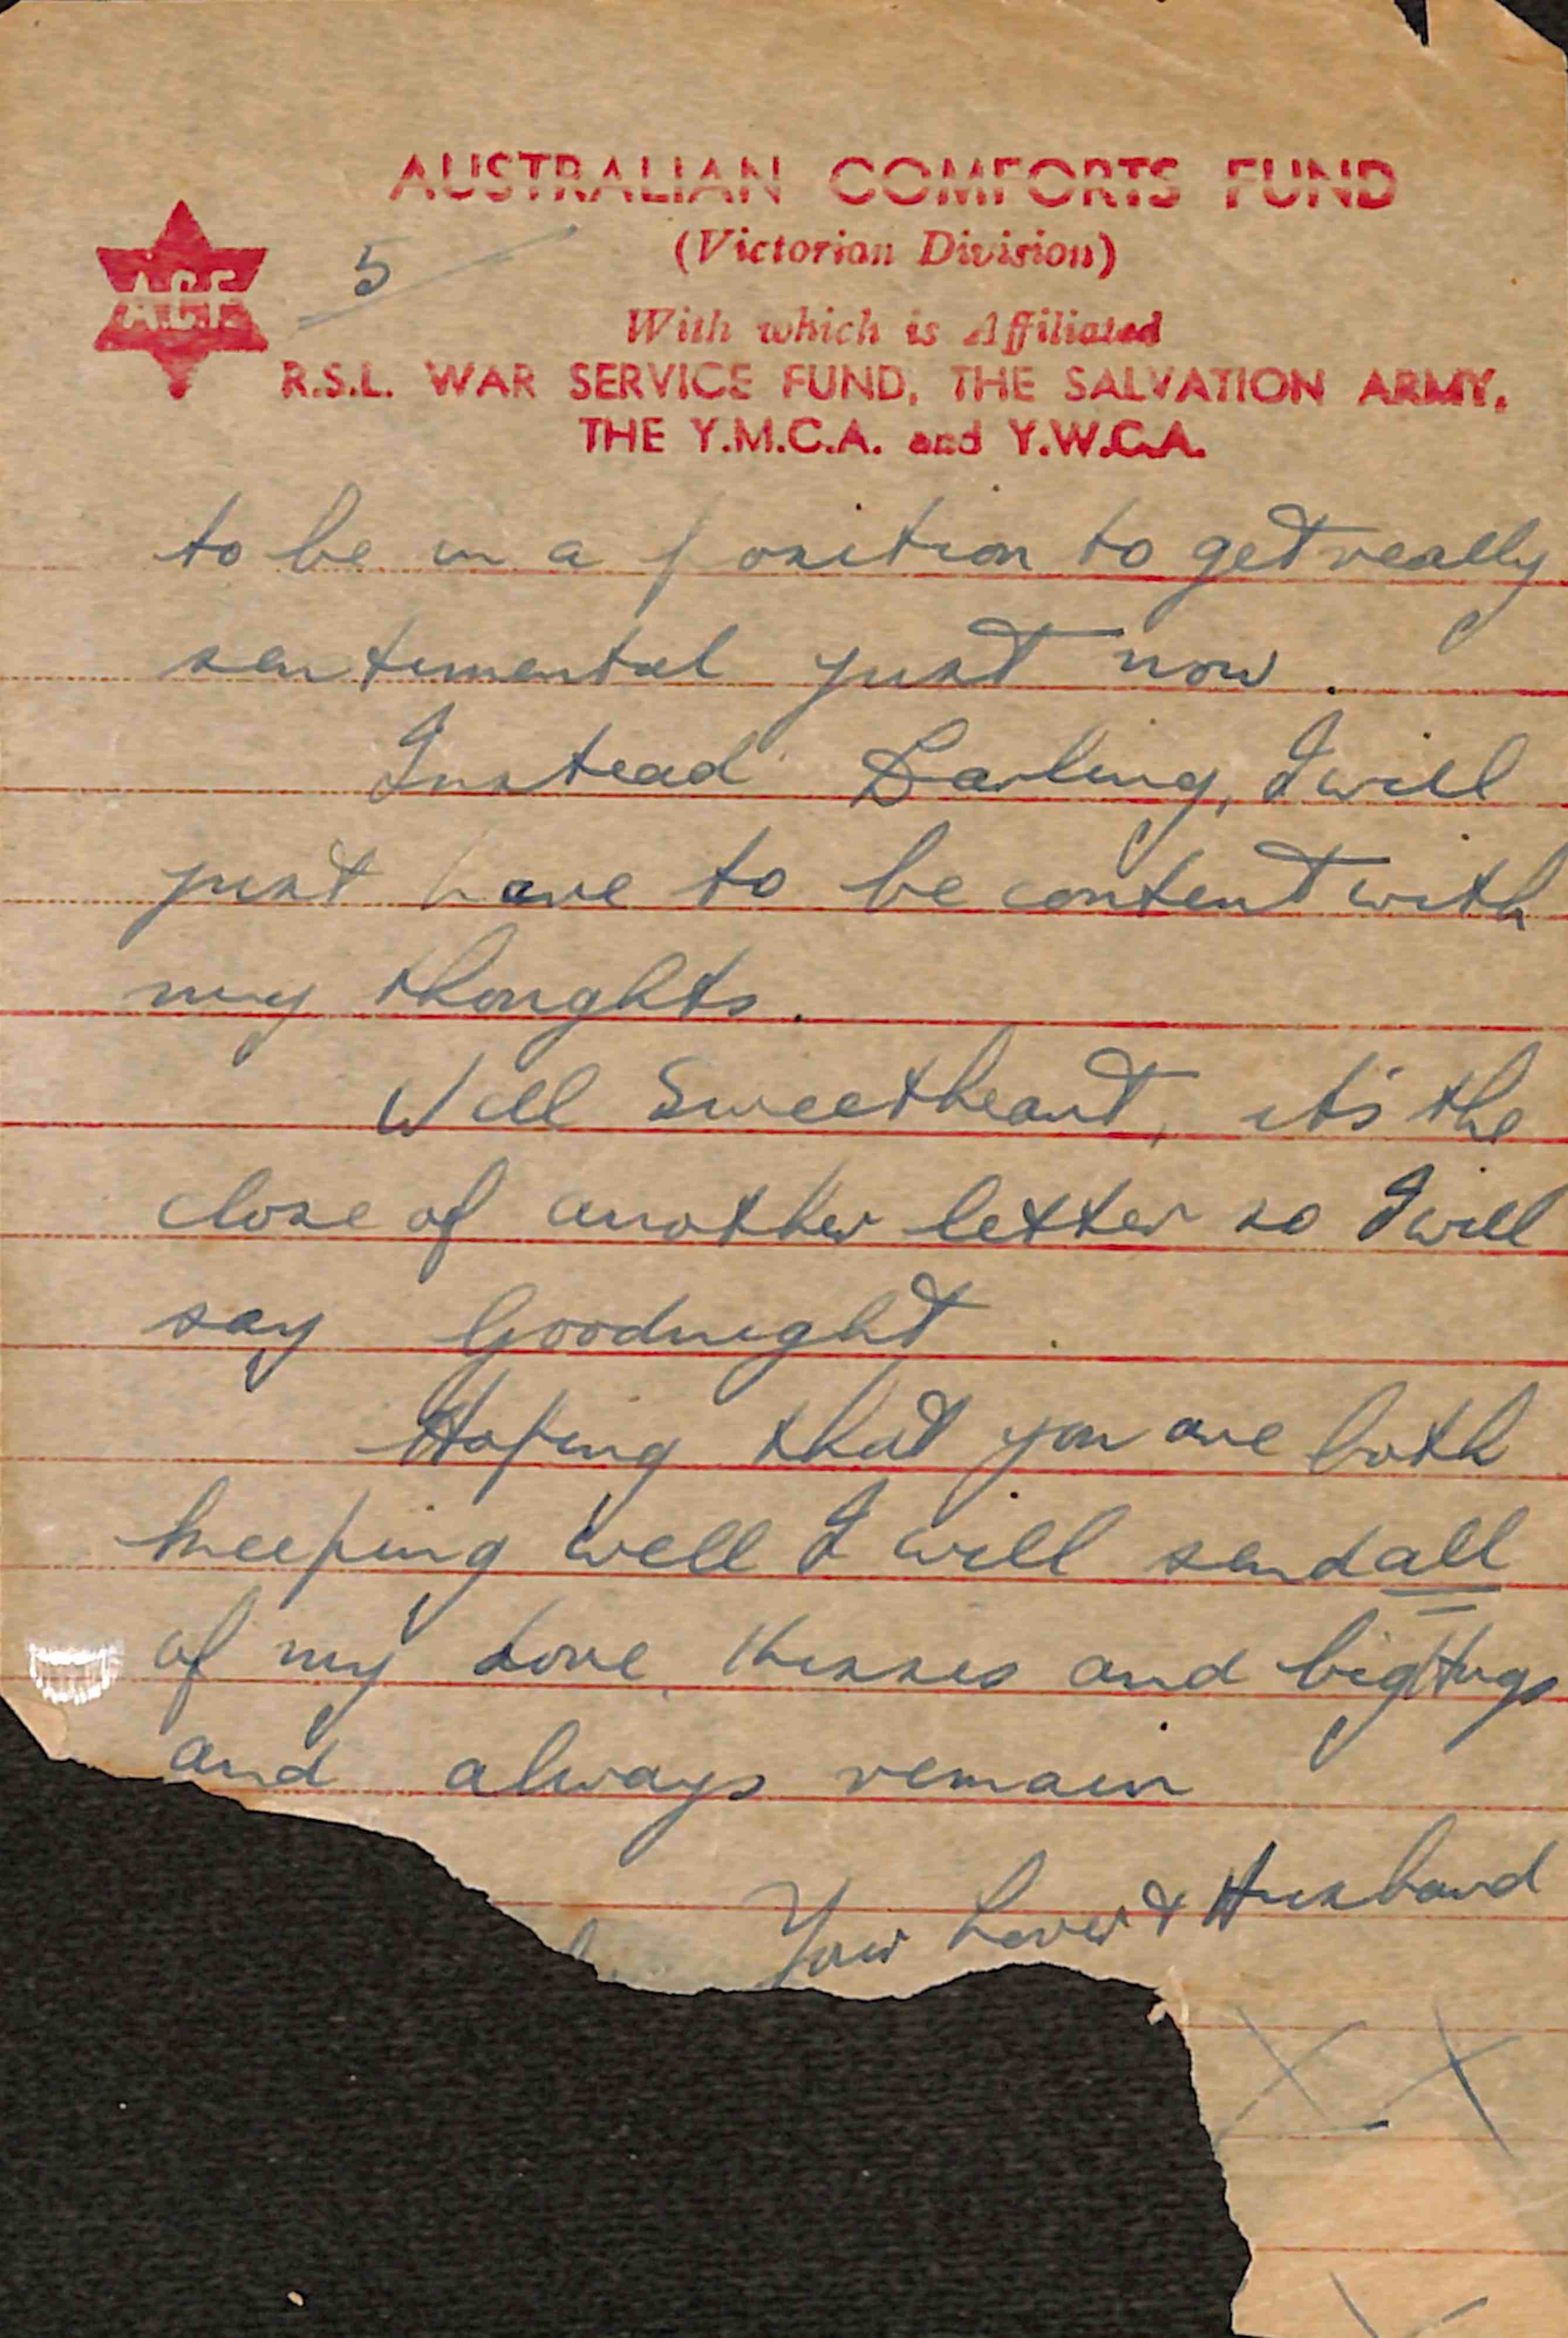 AUSTRALIAN COMFORTS FUND
(Victorian Division)
ACF
5
With which is Affiliated
R.S.L. WAR SERVICE FUND, THE SALVATION ARMY,
THE Y.M.C.A. and Y.W.C.A.
to be in a position to get really
sentimental just now.
Instead Darling, I will
just have to be content with
my thoughts.
Well Sweetheart, it's the
close of another letter so I will
say Goodnight.
Hoping that you are both
keeping well I will send all
of my Love, Kisses and big Hugs
and always remain
Your Lover & Husband
X X